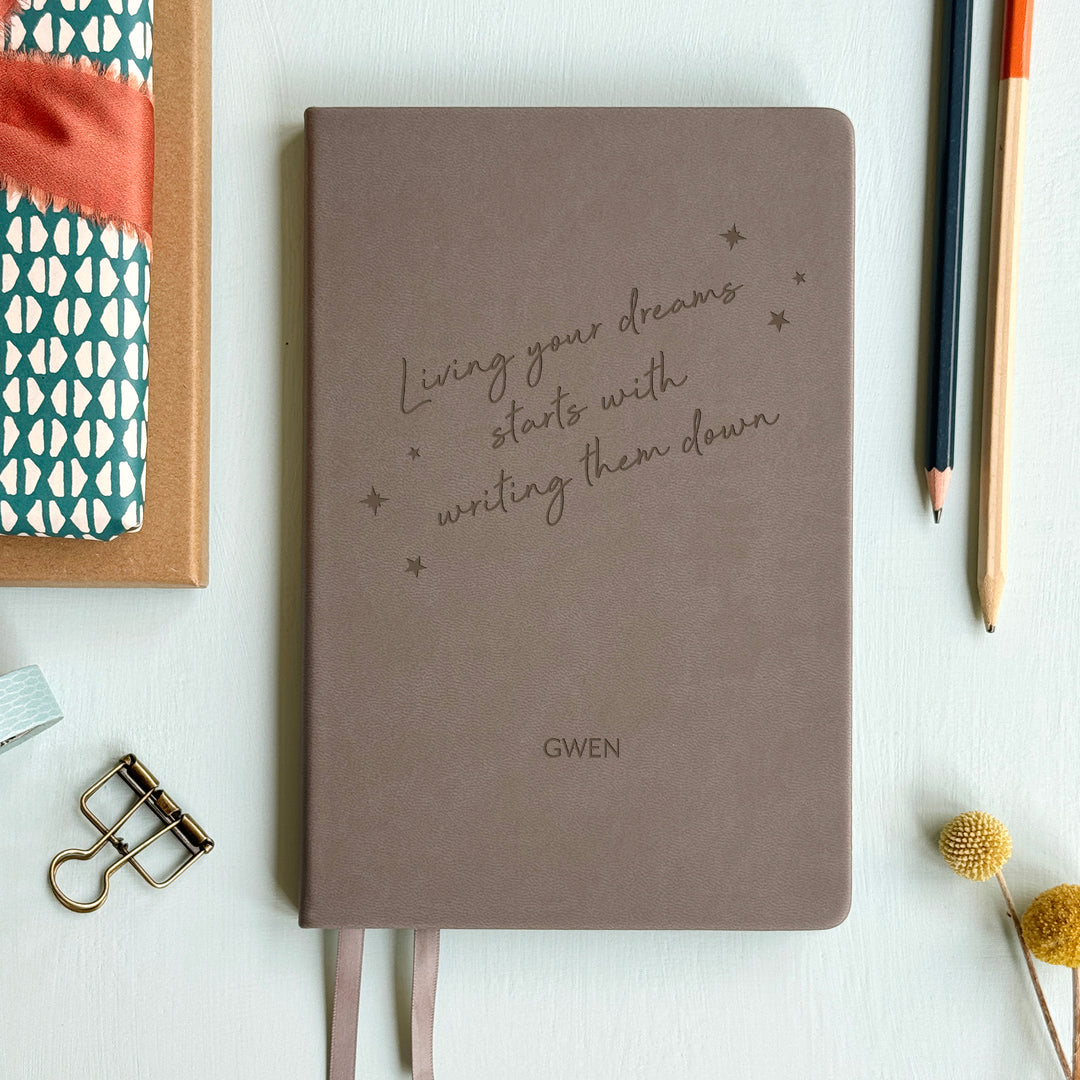 Living your dreams
starts with
writing them down
GWEN